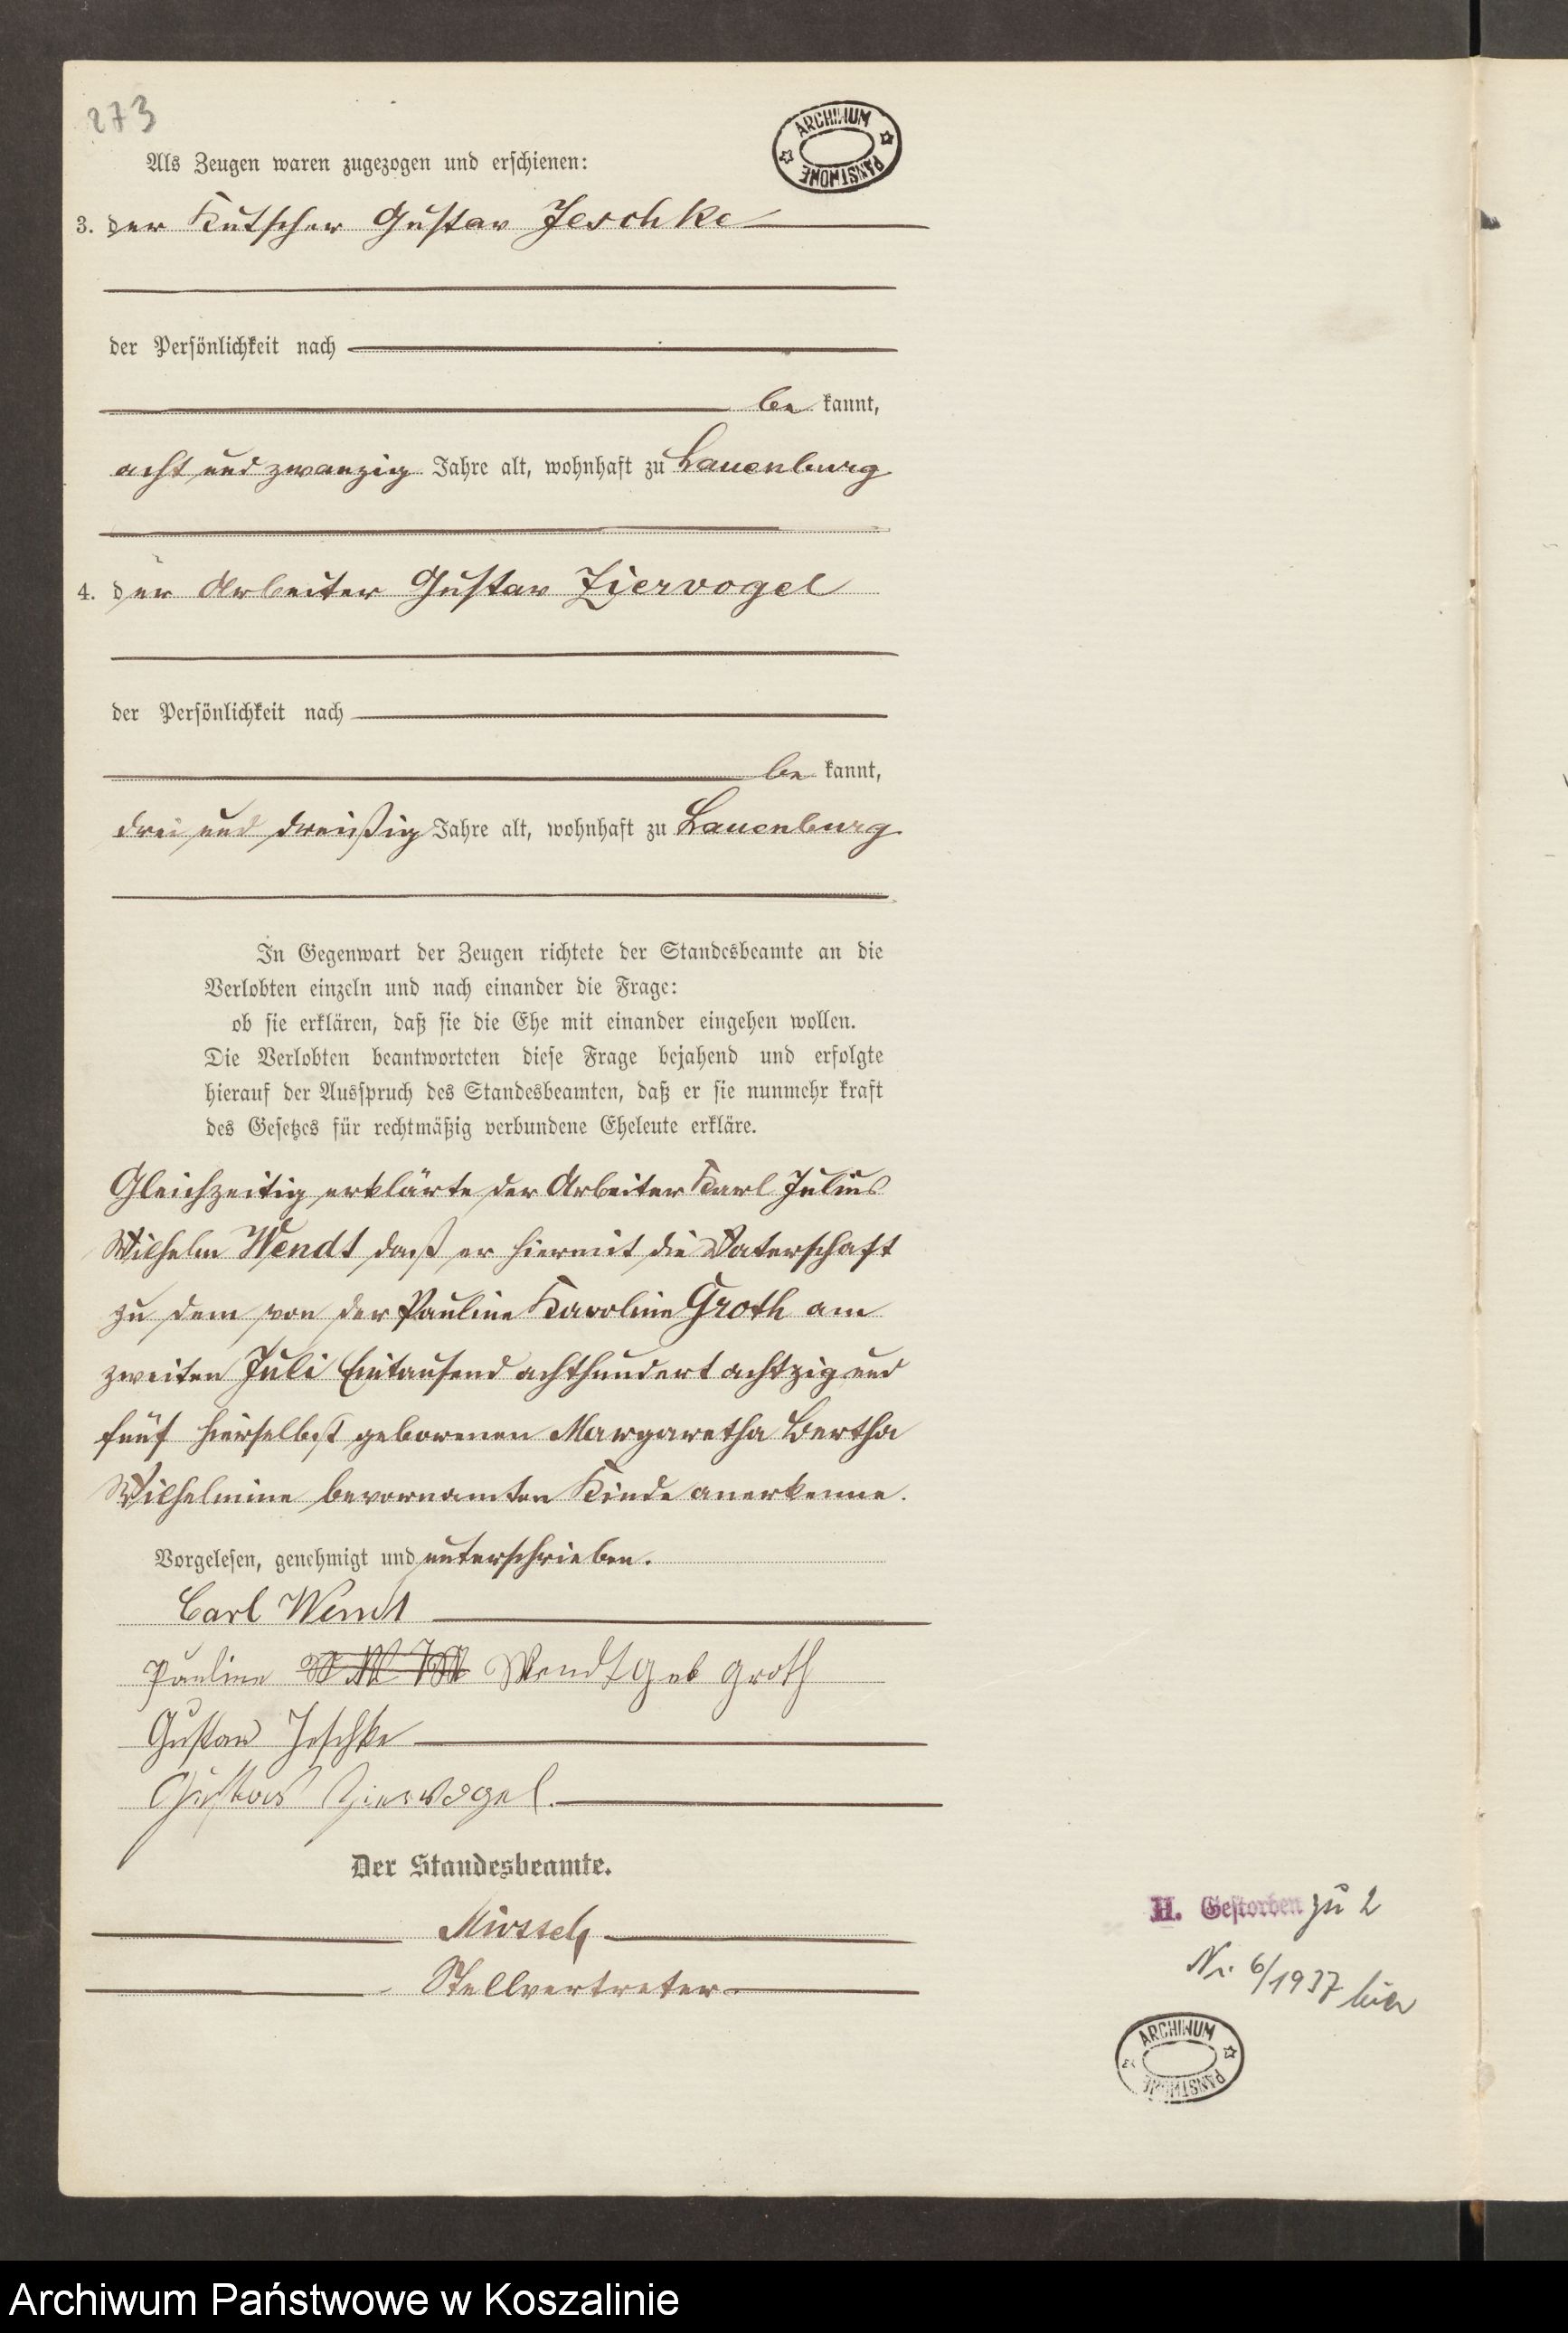 273
ARCHIWUM PAŃSTWOWE
Als Zeugen waren zugezogen und erschienen:
3. der Kutscher Gustav Jeschke
der Persönlichkeit nach
be kannt,
acht und zwanzig Jahre alt, wohnhaft zu Lauenburg
4. der Arbeiter Gustav Ziervogel
der Persönlichkeit nach
be kannt,
drei und dreißig Jahre alt, wohnhaft zu Lauenburg
In Gegenwart der Zeugen richtete der Standesbeamte an die
Verlobten einzeln und nach einander die Frage:
ob sie erklären, daß sie die Ehe mit einander eingehen wollen.
Die Verlobten beantworteten diese Frage bejahend und erfolgte
hierauf der Ausspruch des Standesbeamten, daß er sie nunmehr kraft
des Gesetzes für rechtmäßig verbundene Eheleute erkläre.
Gleichzeitig erklärte der Arbeiter Karl Julius
Wilhelm Wendt daß er hiermit die Vaterschaft
zu dem von der Pauline Karoline Groth am
zweiten Juli Eintausend achthundert achtzig und
fünf hierselbst geborenen Margaretha Bertha
Wilhelmine bevornamten Kinde anerkenne.
Vorgelesen, genehmigt und unterschrieben.
Carl Wendt
Pauline Wendt geb Groth
Gustav Jeschke
Gustav Ziervogel.
Der Standesbeamte.
Stellvertreter
H. Gestorben zu 2
Nr. 6/1937 hier
ARCHIWUM PAŃSTWOWE
Archiwum Państwowe w Koszalinie